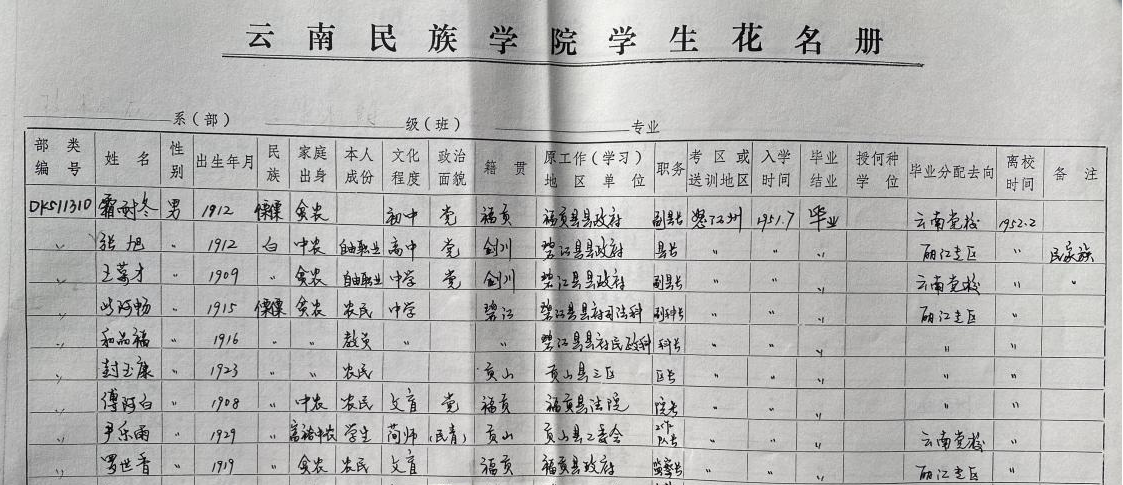 云南民族学院学生花名册
系(部) 级(班) 专业
部类编号 姓名 性别 出生年月 民族 家庭出身 本人成份 文化程度 政治面貌 籍贯 原工作(学习)地区单位 职务 考区或送训地区 入学时间 毕业结业 授何种学位 毕业分配去向 离校时间 备注
DK511310 霜耐冬 男 1912 傈僳 贫农 初中 党 福贡 福贡县县政府 副县长 怒江州 1951.7 毕业 云南党校 1952.2
〃 张旭 〃 1912 白 中农 自由职业 高中 党 剑川 碧江县县政府 县长 〃 〃 〃 丽江专区 〃 民家族
〃 王荣才 〃 1909 〃 贫农 自由职业 中学 党 剑川 碧江县县政府 副县长 〃 〃 〃 云南党校 〃 〃
〃 阿畅 〃 1915 傈僳 贫农 农民 中学 碧江 碧江县县府司法科 副科长 〃 〃 〃 丽江专区 〃
〃 和品福 〃 1916 〃 〃 教员 〃 〃 碧江县县府民政科 科长 〃 〃 〃 〃 〃
〃 封玉康 〃 1923 〃 〃 农民 贡山 贡山县三区 区长 〃 〃 〃 〃 〃
〃 傅阿白 〃 1908 〃 中农 农民 文盲 党 福贡 福贡县法院 院长 〃 〃 〃 〃 〃
〃 尹乐雨 〃 1929 〃 富裕中农 学生 简师 (民青) 贡山 贡山县工委会 队长 〃 〃 〃 云南党校 〃
〃 罗世香 〃 1919 〃 贫农 农民 文盲 福贡 福贡县政府 〃 〃 〃 丽江专区 〃